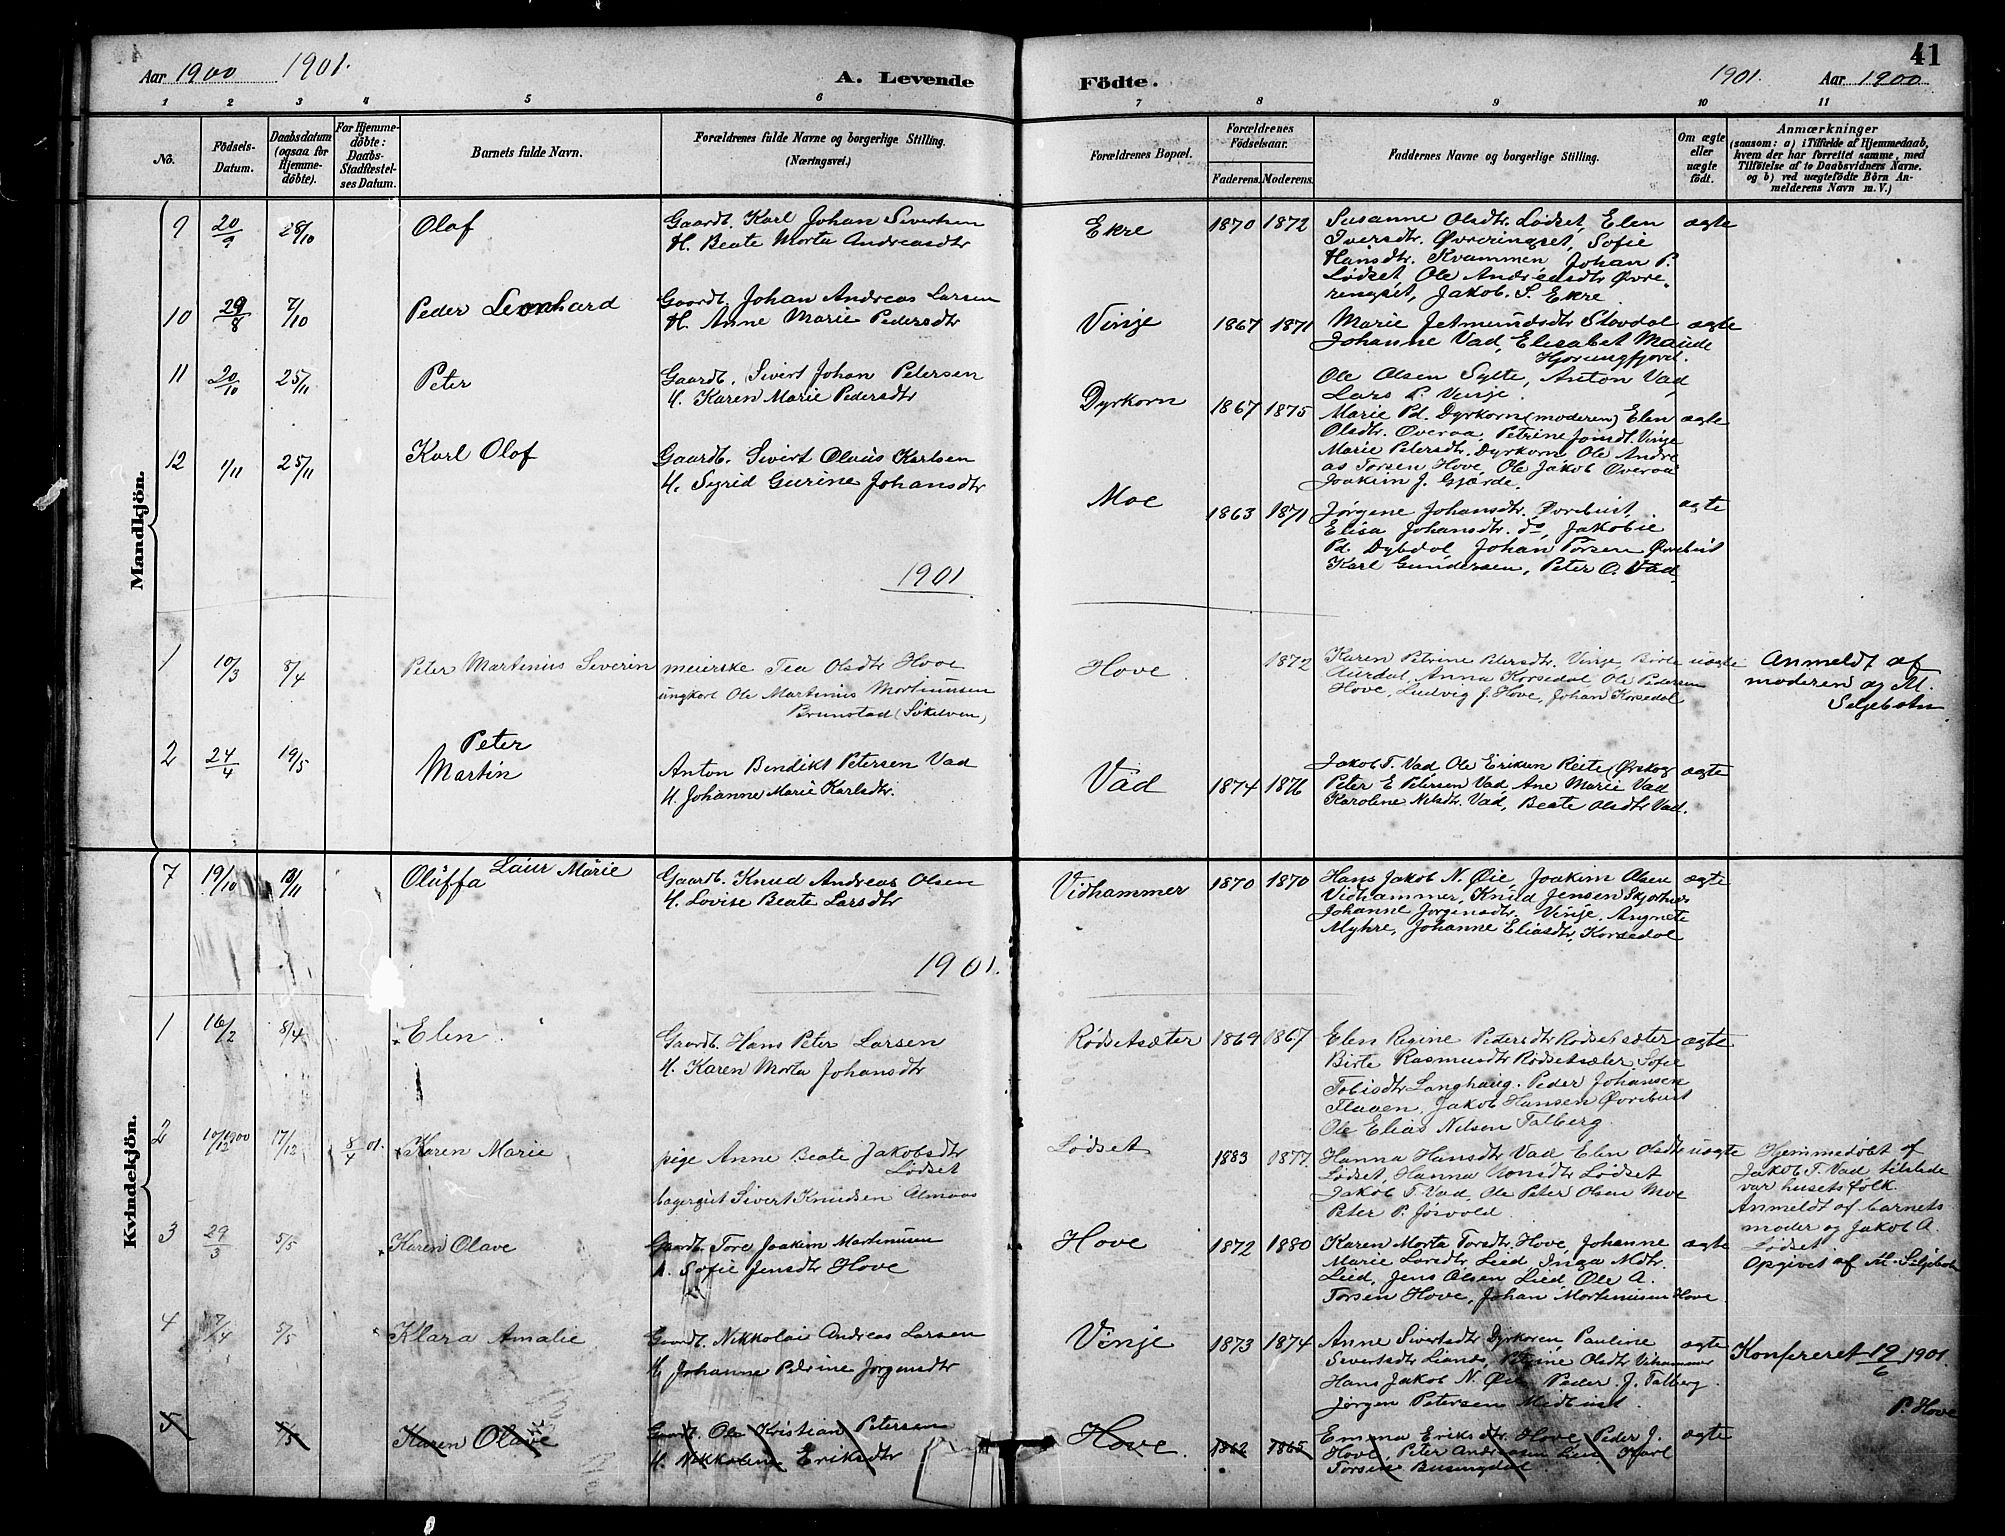 41
Aar 1900 1901.
A. Levende
Födte.
1901. Aar 1900
1 2 3 4 5 6 7 8 9 10 11
No.
Födsels-
Datum.
Daabsdatum
(ogsaa for
Hjemme-
döbte).
For Hjemme-
döbte:
Daabs-
Stadfestel-
ses Datum.
Barnets fulde Navn.
Forældrenes fulde Navne og borgerlige Stilling.
(Næringsvei.)
Forældrenes Bopæl.
Forældrenes
Födselsaar.
Faderens. Moderens.
Faddernes Navne og borgerlige Stilling.
Om ægte
eller
uægte
födt.
Anmærkninger
(saasom: a) i Tilfælde af Hjemmedaab,
hvem der har forrettet samme, med
Tilföielse af to Daabsvidners Navne.
og b) ved uægtefödte Börn An-
melderens Navn m. V.)
Mandkjön.
9 20/9 28/10 Olaf
Gaardb. Karl Johan Sivertsen
H. Beate Marta Andreasdtr
Ekre 1870 1872
Susanne Olsdtr. Lødset, Elen
Iversdtr. Øvreringset, Sofie
Hansdtr. Kvammen Johan P.
Lødset Ole Andreasdtr Øvre-
ringset, Jakob S. Ekre
ægte
10 29/8 7/10 Peder Leonhard
Gaardb. Johan Andreas Larsen
H. Anne Marie Pedersdtr
Vinje 1867 1871
Marie Jetmundsdtr Stavdal
Johanne Vad, Elisabet Maude
Hjørungfjord.
Ole Olsen Sylte, Anton Vad
Lars P. Vinje.
ægte
11 20/10 25/11 Peter
Gaardb. Sivert Johan Petersen
H. Karen Marie Pedersdtr
Dyrkorn 1867 1875
Marie Pd. Dyrkorn (moderen) Elen
Olsdtr. Overaa, Petrine Jonsdt. Vinje
Marie Petersdtr. Dyrkorn, Ole Andre
as Torsen Hove, Ole Jakob Overaa
Joakim J. Gjærde.
ægte
12 1/11 25/11 Karl Olof
Gaardb. Sivert Olaus Karlsen
H. Sigrid Gurine Johansdtr
Moe 1863 1871
Jørgine Johansdtr. Øvrebust,
Elisa Johansdtr. do, Jakobie
Pd. Dybdal, Johan Torsen Øvrebust
Karl Gundersen, Peter O. Vad
ægte
1901
1 10/3 8/4 Peter Martinius Severin
meierske Tea Olsdtr Hove
ungkarl Ole Martinus Martinussen
Brunstad (Søkelven)
Hove 1872
Karen Petrine Petersdtr. Vinje, Birte
Aurdal, Anna Korsedal Ole Pedersen
Hove, Ludvig J. Hove, Johan Korsedal
uægte
Anmeldt af
moderen og M.
Seljebotn
2 24/4 19/5 Peter
Martin
Anton Bendikt Petersen Vad
H. Johanne Marie Karlsdtr.
Vad 1874 1876
Jakob T. Vad Ole Eriksen Reite (Ørskog
Peter E Petersen Vad, Ane Marie Vad
Karoline Nilsdtr. Vad, Beate Olsdtr Vad.
ægte
Kvindekjön.
7 19/10 18/11 Oluffa Laur Marie
Gaardb. Knud Andreas Olsen
H. Lovise Beate Larsdtr
Vidhammer 1870 1870
Hans Jakob N. Øie, Joakim Olsen
Vidhammer, Knud Jensen Skjortnes
Johanne Jørgensdtr. Vinje, Angnete
Myhre, Johanne Eliasdtr, Korsedal
ægte
1901.
1 16/2 8/4 Elen
Gaardb. Hans Peter Larsen
H. Karen Marta Johansdtr
Rødsetsæter 1869 1867
Elen Regine Pedersdtr Rødsetsæter
Birte Rasmusdtr Rødsetsæter, Sofie
Tobisdtr Langhaug. Peder Johansen
Flaaen, Jakob Hansen Øvrebust
Ole Elias Nilsen Talberg.
ægte
2 10/12 1900 17/12 8/4 01. Karen Marie
pige Anne Beate Jakobsdtr
Lødset
bagergut Sivert Knudsen Almaas
Lødset 1883 1877
Hanna Hansdtr. Vad Elen Olsdtr
Lødset, Hanna Lødset
Jakob T. Vad, Ole Peter Olsen Moe
Peter P. Jøsvold.
uægte
Hjemmedøbt af
Jakob T. Vad tilstede
var husets folk.
Anmeldt af barnets
moder og Jakob A.
Lødset.
Opgivet af M. Seljebotn
3 29/3 5/5 Karen Olave
Gaardb. Tore Joakim Martinusen
H. Sofie Jensdtr Hove
Hove 1872 1880
Karen Marta Torsdtr. Hove, Johanne
Marie Larsdtr. Lied Inga Mdtr.
Lied, Jens Olsen Lied Ole A.
Torsen Hove, Johan Martinusen Hove
ægte
4 7/4 5/5 Klara Amalie
Gaardb. Nikkolai Andreas Larsen
H. Johanne Petrine Jørgensdtr
Vinje 1873 1874
Anne Sivertsdtr Dyrkoren, Pauline
Sivertsdtr Liands, Regine Olsdtr Vihammer
Hans Jakob N. Øie Peder J. Talberg
Jørgen Petersen Midtust.
ægte
Konfereret 19/6 1901
P. Hove
5 5/5 Karen Olave
Gaardb. Ole Kristian Petersen
H. Nikkoline Eriksdtr
Hove. 1862 1865
Emma Eriksdtr. Hove Peder J.
Hove, Peter Andreasen Lien Karl
Torsen Busengdal.
ægte